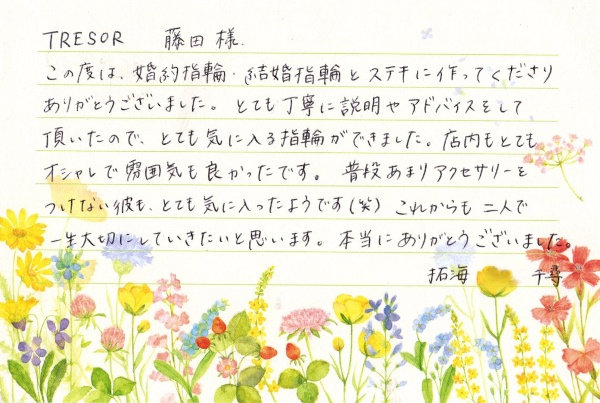 TRESOR 藤田 様.
この度は、婚約指輪・結婚指輪とステキに作ってくださり
ありがとうございました。とても丁寧に説明やアドバイスをして
頂いたので、とても気に入る指輪ができました。店内もとても
オシャレで雰囲気も良かったです。普段あまりアクセサリーを
つけない彼も、とても気に入ったようです(笑) これからも二人で
一生大切にしていきたいと思います。本当にありがとうございました。
拓海 千尋